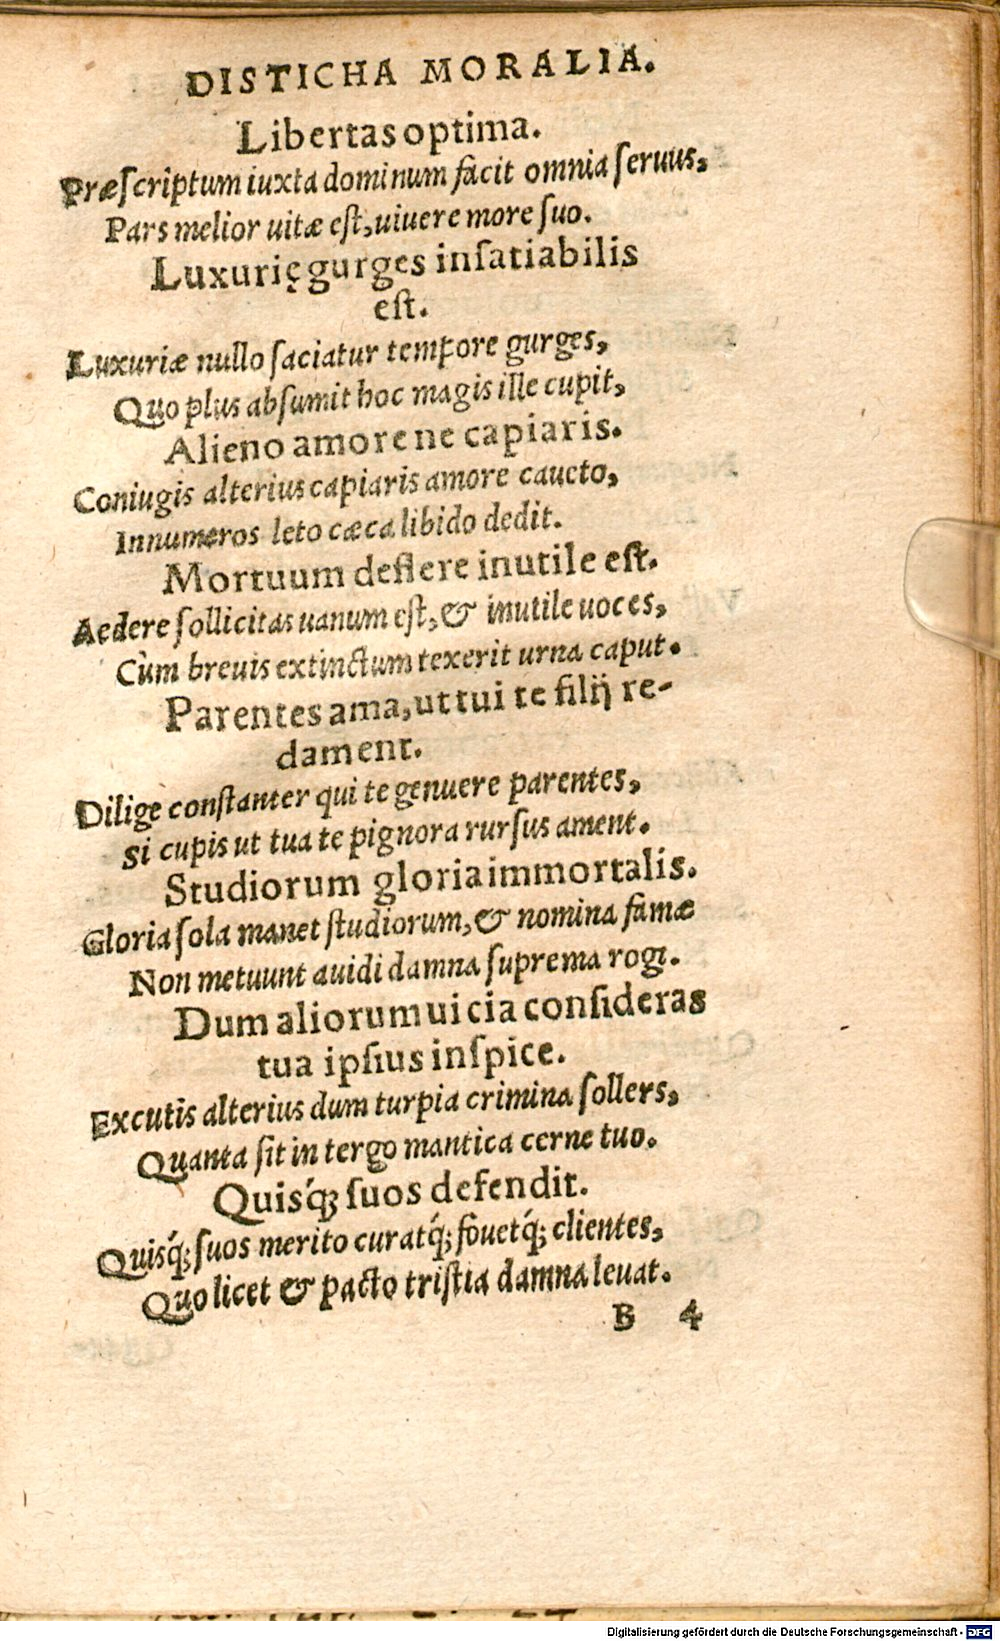 DISTICHA MORALIA.
Libertas optima.
Præſcriptum iuxta dominum facit omnia ſeruus,
Pars melior uitæ eſt, uiuere more ſuo.
Luxurię gurges inſatiabilis
eſt.
Luxuriæ nullo ſaciatur tempore gurges,
Quo plus abſumit hoc magis ille cupit,
Alieno amore ne capiaris.
Coniugis alterius capiaris amore caueto,
Innumeros leto cæca libido dedit.
Mortuum deflere inutile eſt.
Aedere ſollicitas uanum eſt, & inutile uoces,
Cùm breuis extinctum texerit urna caput.
Parentes ama, ut tui te filij re-
dament.
Dilige conſtanter qui te genuere parentes,
Si cupis ut tua te pignora rurſus ament.
Studiorum gloria immortalis.
Gloria ſola manet ſtudiorum, & nomina famæ
Non metuunt auidi damna ſuprema rogi.
Dum aliorum uicia conſideras
tua ipſius inſpice.
Excutis alterius dum turpia crimina ſollers,
Quanta ſit in tergo mantica cerne tuo.
Quisq́; ſuos defendit.
Quisq́; ſuos merito curatq́; fouetq́; clientes,
Quo licet & pacto triſtia damna leuat.
B 4
Digitalisierung gefördert durch die Deutsche Forschungsgemeinschaft - DFG